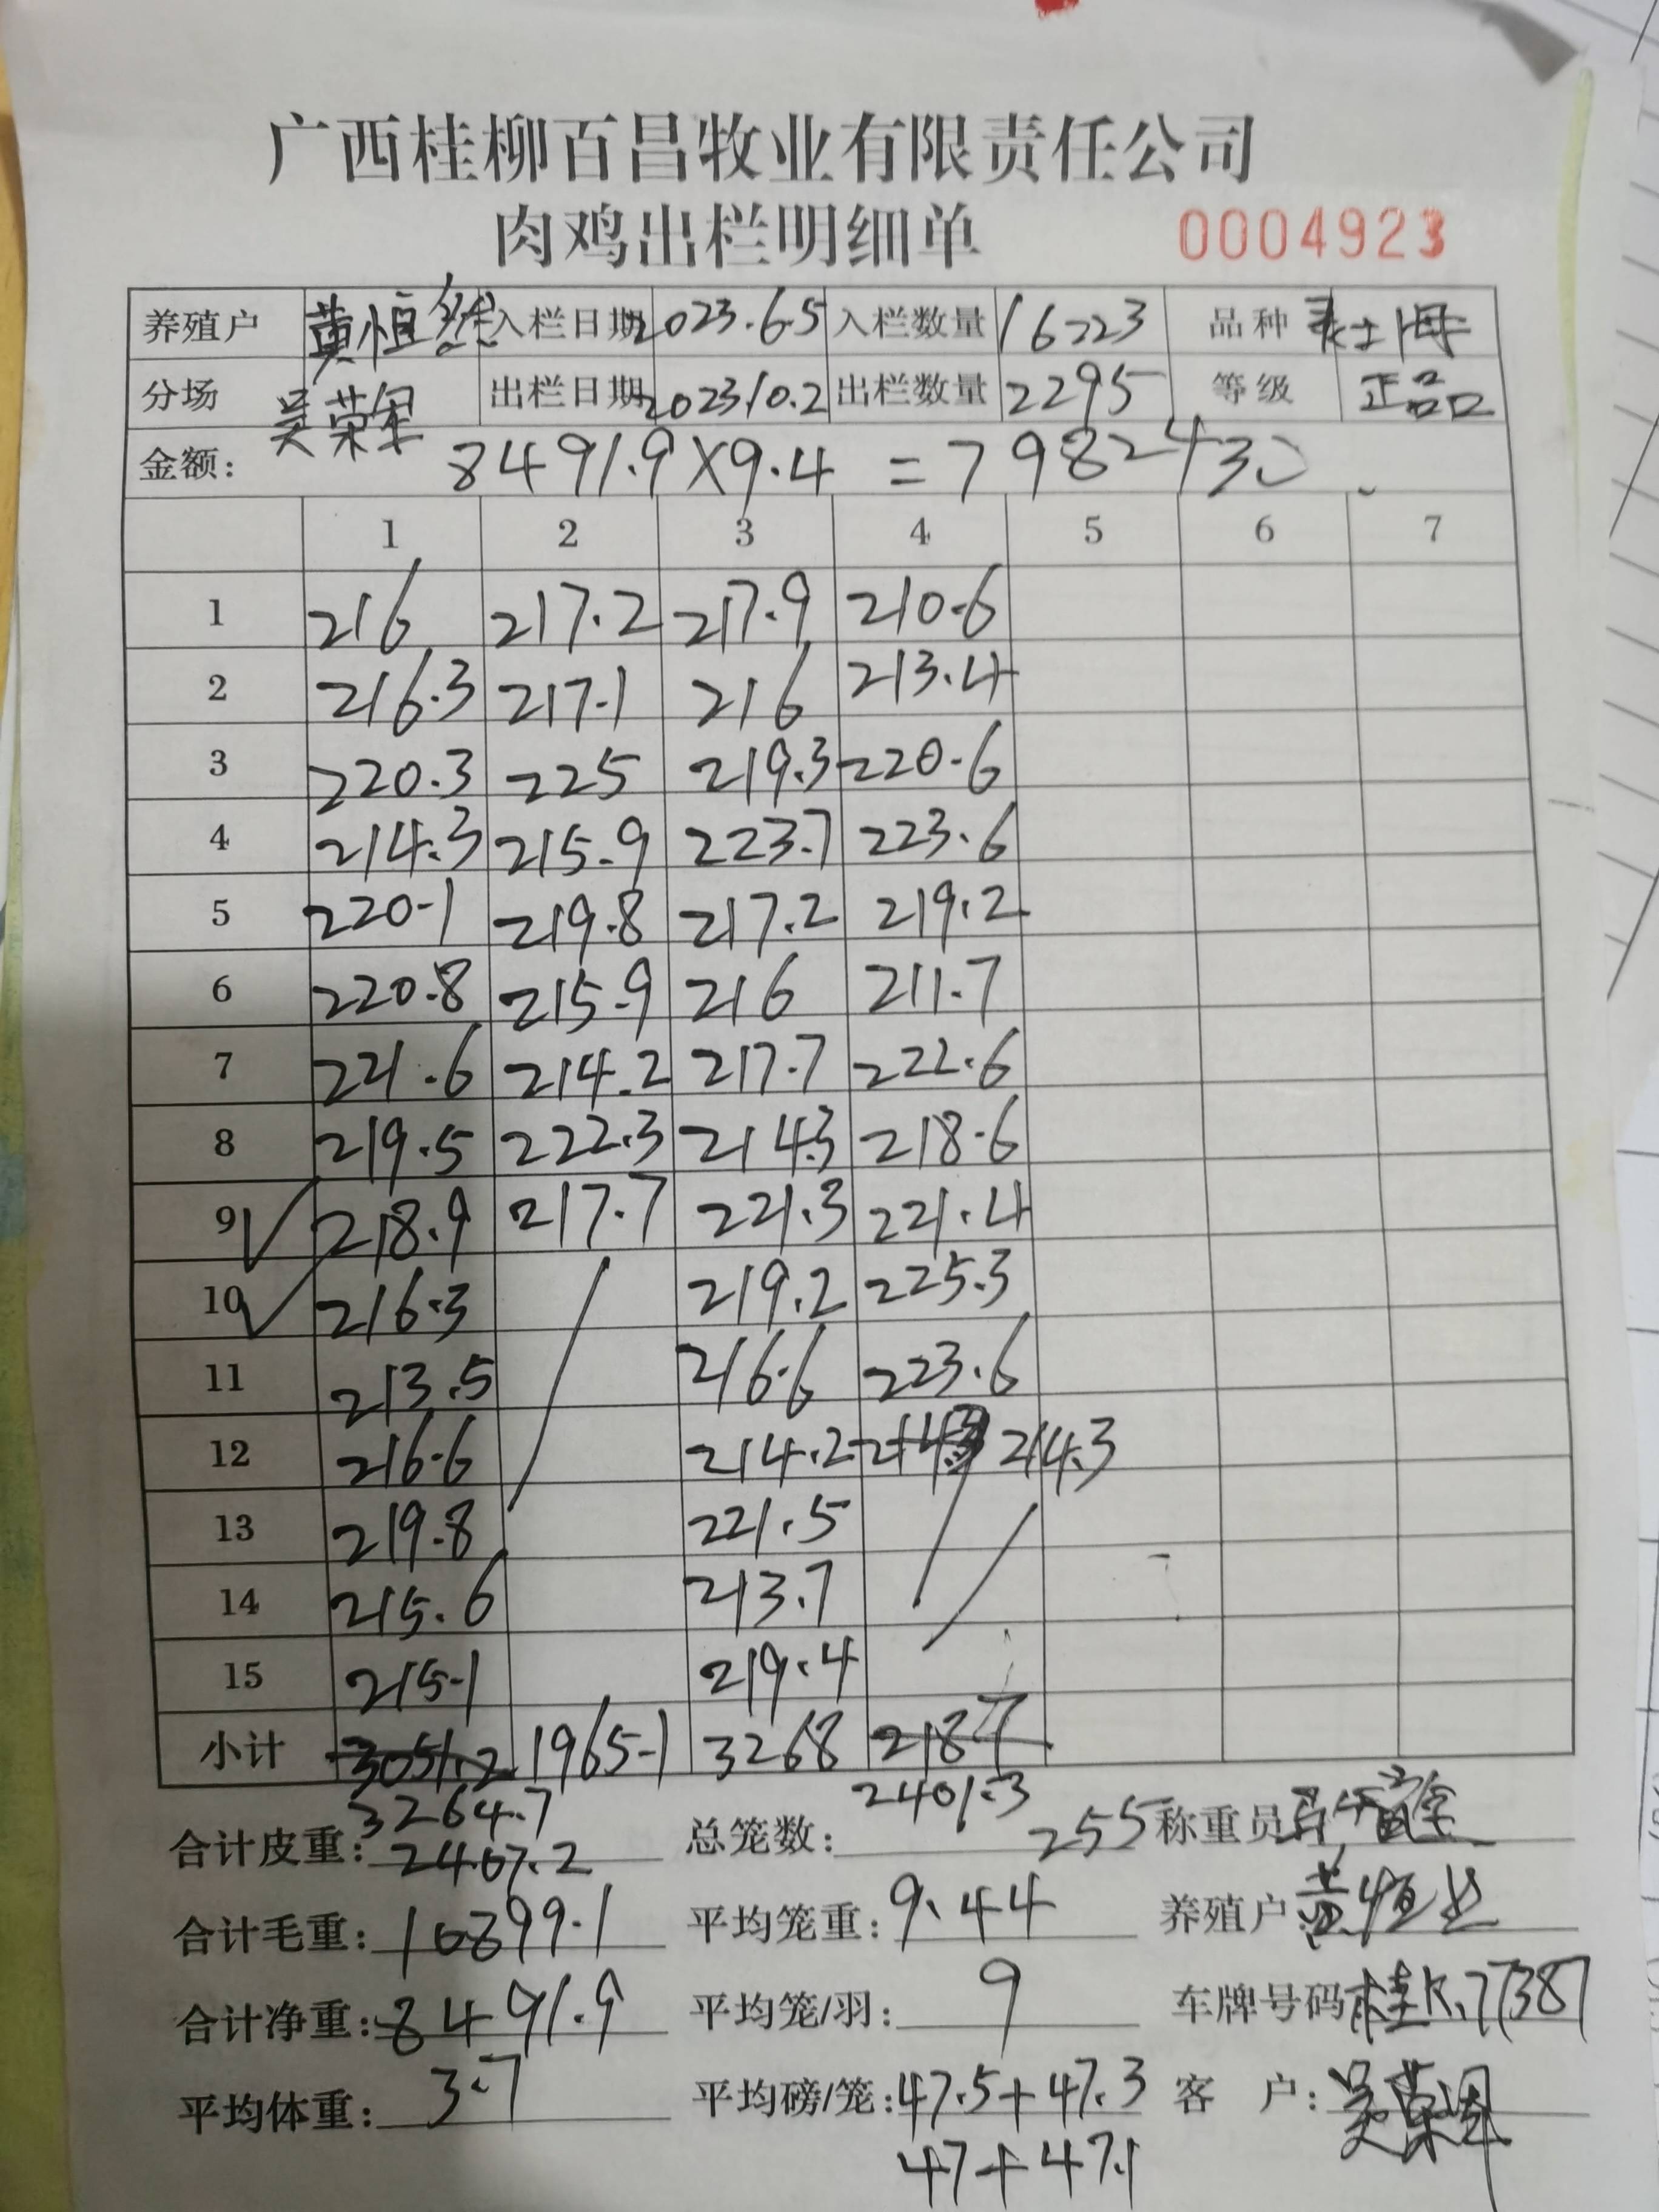 广西桂柳百昌牧业有限责任公司
肉鸡出栏明细单 0004923
养殖户 黄恒然 入栏日期 2023.6.5 入栏数量 16223 品种
分场 吴荣军 出栏日期 2023.10.2 出栏数量 2295 等级 正品
金额: 8491.9×9.4=79824
1 2 3 4 5 6 7
1 216 217.2 217.9 210.6
2 216.3 217.1 216 213.4
3 220.3 225 219.3 220.6
4 214.3 215.9 223.7 223.6
5 220.1 219.8 217.2 219.2
6 220.8 215.9 216 211.7
7 221.6 214.2 217.7 222.6
8 219.5 222.3 214.3 218.6
9 218.9 217.7 221.3 221.4
10 216.3 219.2 225.3
11 213.5 216.6 223.6
12 216.6 214.2 214.3 214.3
13 219.8 221.5
14 215.6 213.7
15 215.1 219.4
小计 3051.2 1965.1 3268 2187
3264.7 2401.3
合计皮重: 2407.2 总笼数: 255 称重员
合计毛重: 10899.1 平均笼重: 9.44 养殖户:黄恒
合计净重: 8491.9 平均笼/羽: 9 车牌号码 桂K.77387
平均体重: 3.7 平均磅/笼: 47.5+47.3 客 户: 吴荣军
47+47.1